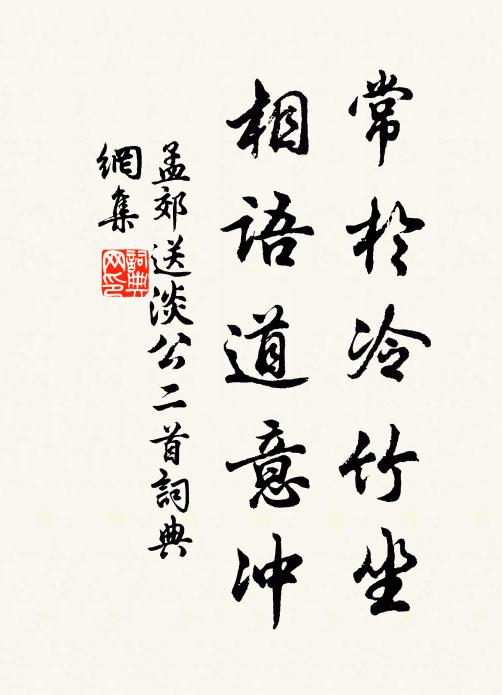 常於冷竹坐
相語道意冲
孟郊送淡公二首詞典
網集
詞典
网印